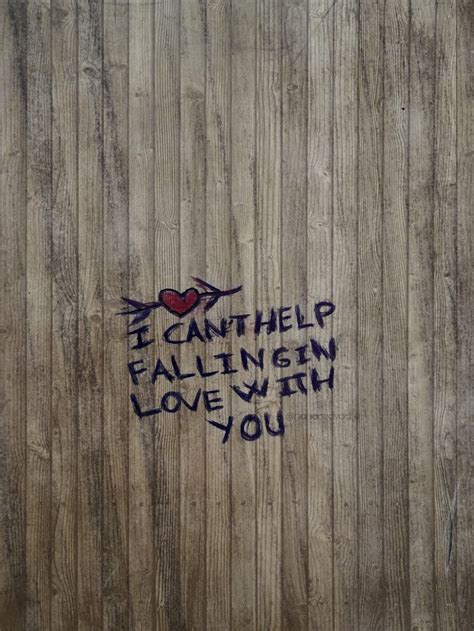 I CANT HELP
FALLING IN
LOVE WITH
YOU